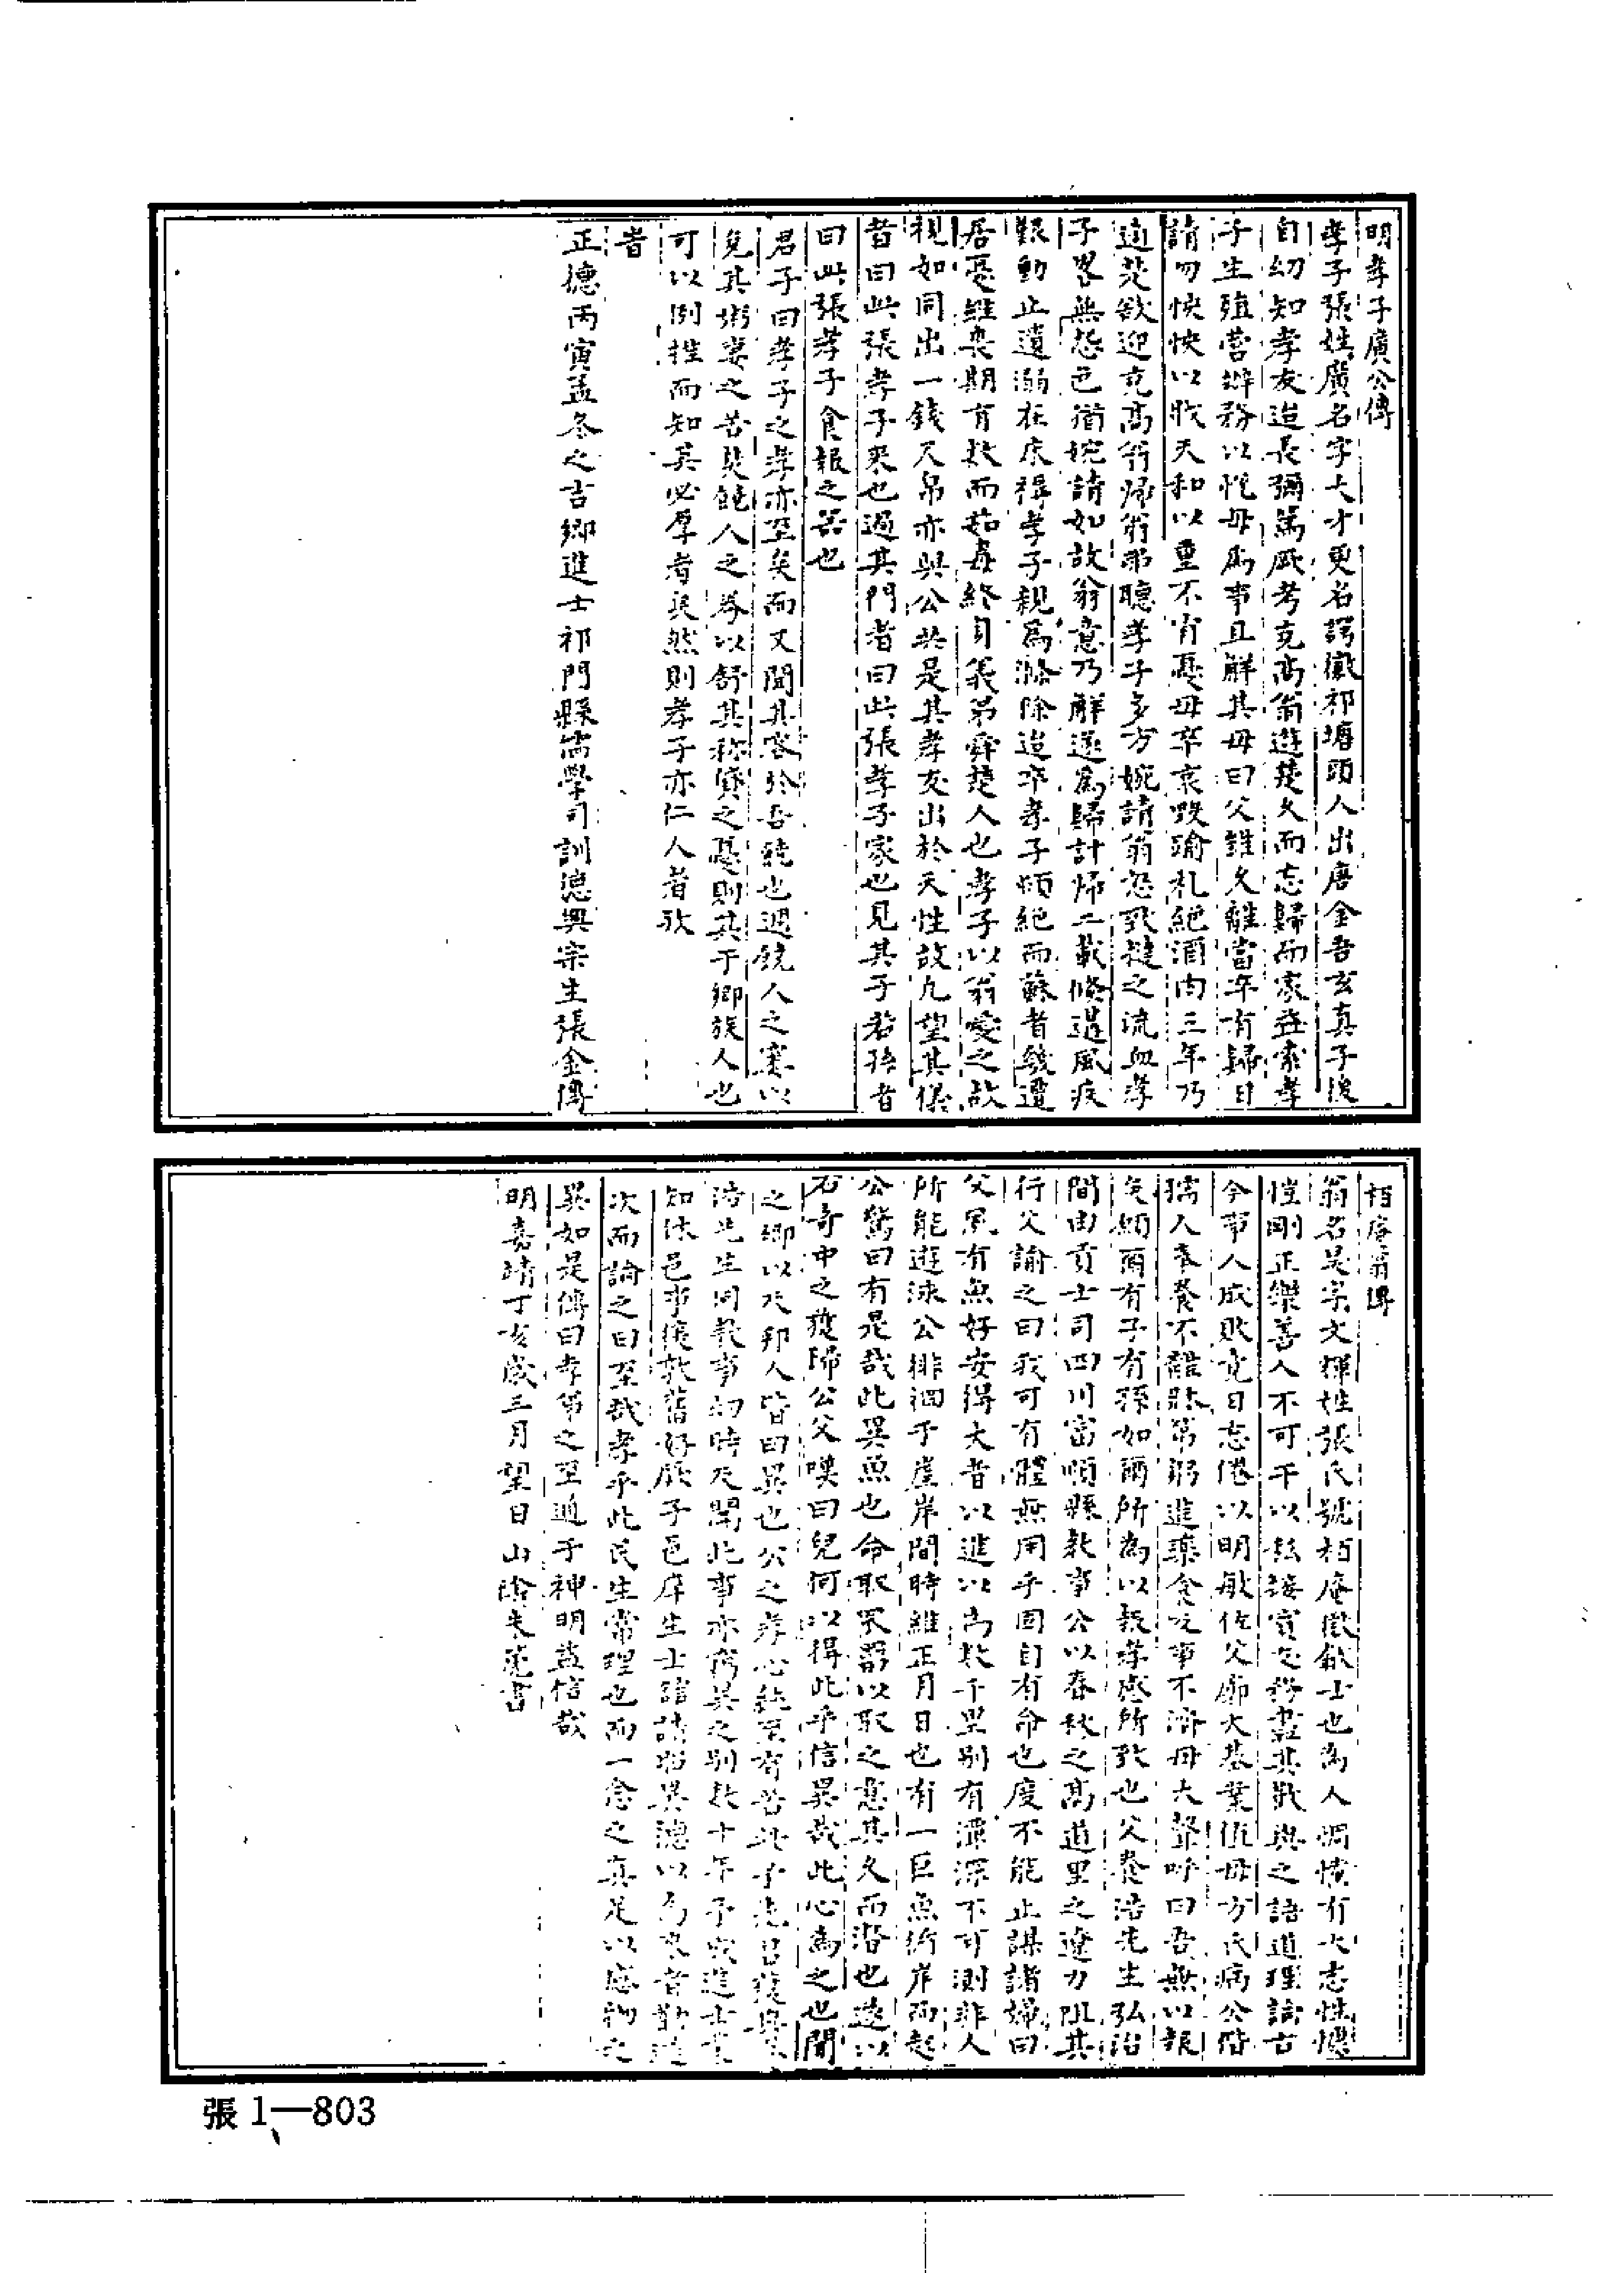 明孝子廣公傳
孝子張姓廣名字大才更名諤徽祁塘頭人出唐金吾玄真子後
自幼知孝友迨長彌篤厥考克高翁遊楚久而忘歸而家益索孝
子生殖營辦務以悅母爲事且解其母曰父雖久離當年有歸日
請勿怏怏以戕天和以重不肖憂母卒哀毀踰札絕酒肉三年乃
適楚欲迎克高翁歸翁弗聽孝子多方婉請翁怒致撻之流血孝
子畧無怨色猶婉請如故翁意乃解遂爲歸計歸二載倏遘風疾
艱動止遺溺在床褥孝子親爲滌除迨卒孝子頓絕而蘇者幾遭
居憂雖喪期有數而茹毒終身義弟舜楚人也孝子以翁愛之故
視如同出一錢尺帛亦與公共是其孝友出於天性故凡望其儀
者曰此張孝子來也過其門者曰此張孝子家也見其子若孫者
曰此張孝子食報之器也
君子曰孝子之孝亦至矣而又聞其客於吾饒也遇饒人之寒以
免其粥妻之苦焚饒人之券以舒其稱貸之憂則其于鄉族人也
可以例推而知其必厚者良然則孝子亦仁人者歟
者
正德丙寅孟冬之吉鄉進士祁門縣儒學司訓德興宗生張金傳
栢庵翁傳
翁名昊字文輝姓張氏號栢庵徽歙士也為人倜儻有大志性
愷剛正樂善人不可干以私接賓交務盡其歡與之語道理論古
今事人成敗竟日忘倦以明敏佐父廓大基業值母方氏病公偕
孺人奉養不離牀笫粥進藥食之事不濟母大聲呼曰吾無以報
矣願爾有子有孫如爾所為以報孝感所致也父養浩先生弘治
間由貢士司四川富順縣教事公以春秋之高道里之遼力阻其
行父諭之曰我可有體無用乎固自有命也度不能止謀諸婦曰
父夙有魚好安得大者以進以為數千里別有潭深不可測非人
所能遊泳公徘徊于崖岸間時維正月日也有一巨魚傍岸而起
公驚曰有是哉此異魚也命取罘罾以取之意其久而潛也遂以
石奇中之獲歸公父嘆曰兒何以得此乎信異哉此心為之也聞
之鄉以及邦人皆曰異也公之孝心純至有若此予先君復與
浩先生同教事幼時及聞此事亦竊異之別幾十年予忝進士
知休邑事復敦舊好厥子邑庠生士誥請昭異德以為來者勸
次而論之曰至哉孝乎此民生常理也而一念之真足以感物之
異如是傳曰孝弟之至通于神明葢信哉
明嘉靖丁亥歲三月望日山陰朱書
張1—803